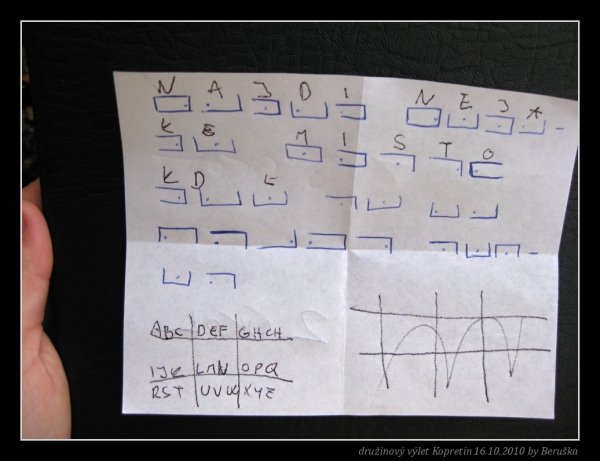 N A J D I N E J A
K E M I S T O
K D E
ABC DEF GHCH
IJK LMN OPQ
RST UVW XYZ
družinový výlet Kopretin 16.10.2010 by Beruška